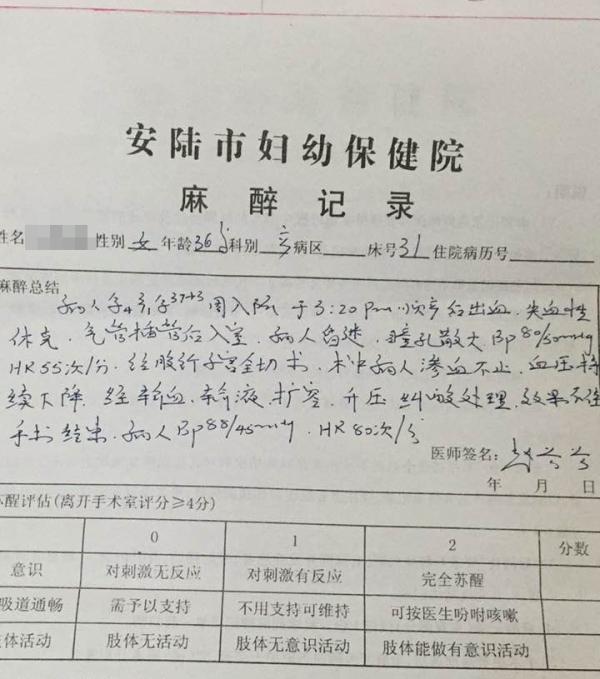 安陆市妇幼保健院
麻醉记录
姓名 性别 女 年龄 36岁 科别 产 病区 床号 31 住院病历号
麻醉总结
病人孕4产1孕37+3周入院 于3:20pm顺产后出血、失血性
休克, 气管插管后入室, 病人昏迷, 瞳孔散大, Bp 80/50mmHg
HR 55次/分, 经腹行子宫全切术, 术中病人渗血不止, 血压持
续下降, 经输血、输液、扩容、升压、纠酸处理, 效果不佳
手术结束, 病人Bp 88/45mmHg, HR 80次/分
医师签名:
年 月 日
苏醒评估(离开手术室评分≥4分)
0 1 2 分数
意识 对刺激无反应 对刺激有反应 完全苏醒
吸道通畅 需予以支持 不用支持可维持 可按医生吩咐咳嗽
肢体活动 肢体无活动 肢体无意识活动 肢体能做有意识活动